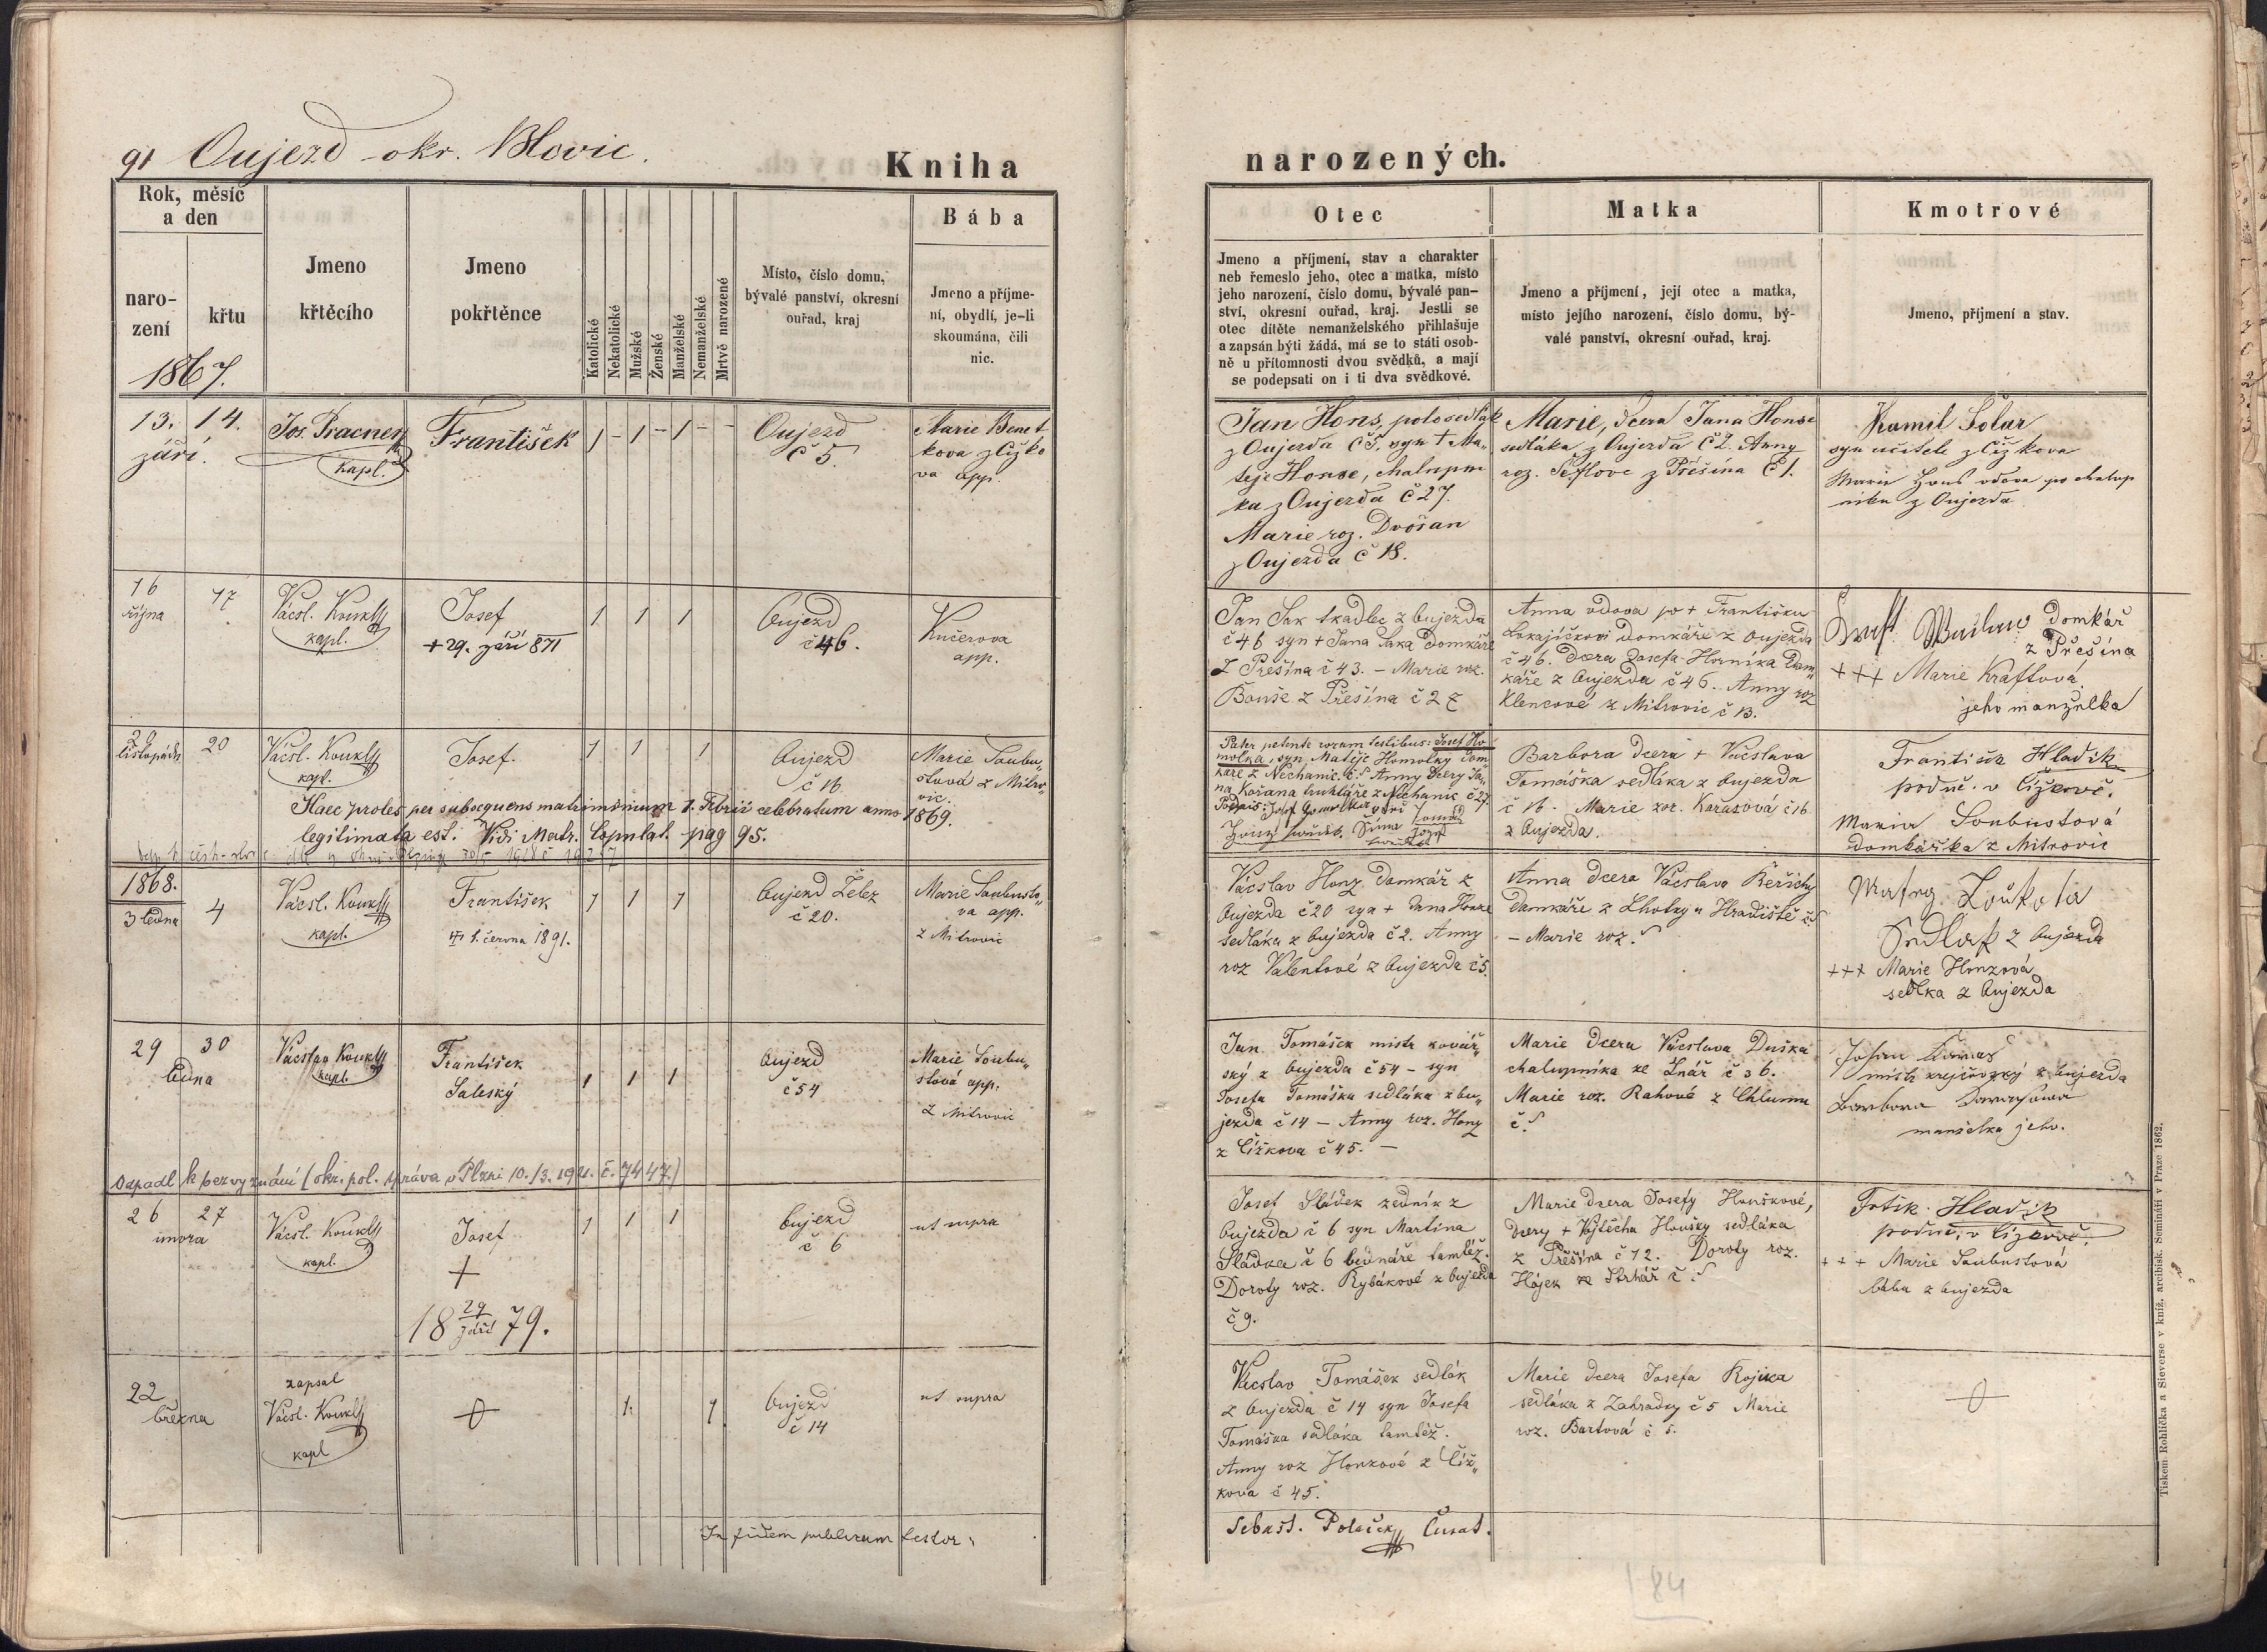 91 Oujezd okr. Blovic.
Kniha
narozených.
Rok, měsíc
a den
naro-
zení
křtu
Jmeno
křtěcího
Jmeno
pokřtěnce
Katolické
Nekatolické
Mužské
Ženské
Manželské
Nemanželské
Mrtvě narozené
Místo, číslo domu,
bývalé panství, okresní
ouřad, kraj
Bába
Jmeno a příjme-
ní, obydlí, je-li
skoumána, čili
nic.
Otec
Jmeno a příjmení, stav a charakter
neb řemeslo jeho, otec a matka, místo
jeho narození, číslo domu, bývalé pan-
ství, okresní ouřad, kraj. Jestli se
otec dítěte nemanželského přihlašuje
a zapsán býti žádá, má se to státi osob-
ně u přítomnosti dvou svědků, a mají
se podepsati on i ti dva svědkové.
Matka
Jmeno a příjmení, její otec a matka,
místo jejího narození, číslo domu, bý-
valé panství, okresní ouřad, kraj.
Kmotrové
Jmeno, příjmení a stav.
1867.
13. 14.
září.
Jos. Pracner
kapl.
František
1 - 1 - 1 - -
Oujezd
č 5.
Marie Benet
kova z Čižko
va app.
Jan Hons, polosedlák
z Oujezda č 5. syn † Ma-
teje Honse, chalupni
ka z Oujezda č 27.
Marie roz. Dvořan
z Oujezda č 18.
Marie, dcera Jana Honse
sedláka z Oujezda č 2. Anny
roz. z Přešína č 1.
Kamil Šolar
syn učitele z Čižkova
Marie Hons vdova po chalup
niku z Oujezda
16 17
října
Vácsl. Koukl
kapl.
Josef
+ 29. září 871
1 1 1
Oujezd
č 46.
Kučerova
app.
Jan Sak tkadlec z Oujezda
č 46 syn + Jana Saka domkáře
z Přešína č 43. - Marie roz.
Bouše z Přešína č 2
Anna vdova po + Františku
Lokajíčkovi domkáře z Oujezda
č 46. dcera Josefa Horníka dom„
káře z Oujezda č 46. Anny roz
Klencové z Mitrovic č 13.
domkář
z Přešína
+++ Marie Kraftová
jeho manželka
20
listopadu
Vácsl. Koukl
kapl.
Josef.
1 1 1
Oujezd
č 16
Marie Soubu„
stová z Mitro„
vic.
Haec proles per subsequens matrimonium 7. Febrii celebratum anno 1869.
legitimata est. Vidi Matr. Copulat. pag 95.
Pater petente coram testibus: Josef Ho
molka, syn Matěje Homolky dom
káře z Nechanic č Anny dcery Ja„
na Kořana truhláře z Nechanic č 27.
Barbora dcera + Václava
Tomáška sedláka z Oujezda
č 16. Marie roz. Karasová č 16
z Oujezda.
František Hladík
poduč. v Čížkově.
Maria Soubustová
domkářka z Mitrovic
1868.
3 ledna 4
Vácsl. Koukl
kapl.
František
1. června 1891.
1 1 1
Oujezd Želez
č 20.
Marie Soubusto„
va app.
z Mitrovic
Václav Honz domkář z
Oujezda č 20 syn + Jana Honze
sedláka z Oujezda č 2. Anny
roz Valentové z Oujezda č 5.
Anna dcera Václava Řeřichy
domkáře z Lhotky u Hradiště č
- Marie roz.
z Oujezda
+++ Marie Honzová
sedlka z Oujezda
29 30
ledna
Václav Koukl
kapl.
František
Saleský
1 1 1
Oujezd
č 54
Marie Soubu„
stová app.
z Mitrovic
Odpadl k bezvyznání (okr. pol. správa v Plzni 10./3. 1921. č. 7447.)
Jan Tomášek mistr kovář„
ský z Oujezda č 54 - syn
Josefa Tomáška sedláka z Ou„
jezda č 14 - Anny roz. Honz
z Čížkova č 45. -
Marie dcera Václava Duška
chalupníka ze Lnář č 36.
Marie roz. Rahové z Chlumu
č.
mistr krejčovský z Oujezda
Barbora
manželka jeho.
26 27
února
Vácsl. Koukl
kapl.
Josef
+
18 29 září 79.
1 1 1
Oujezd
č 6
ut supra
Josef Sládek zedník z
Oujezda č 6 syn Martina
Sládka č 6 bednáře tamtéž.
Doroty roz. Rybákové z Oujezda
č 9.
Marie dcera Josefy Houškové,
dcery + Vojtěcha Houšky sedláka
z Přešína č 12. Doroty roz.
Hájek ze Strhář č.
Frtik. Hladík
poduč. v Čížkově.
+ + + Marie Soubustová
bába z Oujezda
22
března
zapsal
Vácsl. Koukl
kapl
1. 1
Oujezd
č 14
ut supra
Václav Tomášek sedlák
z Oujezda č 14 syn Josefa
Tomáška sedláka tamtéž.
Anny roz Honzové z Číž„
kova č 45.
Marie dcera Josefa Rojika
sedláka z Zahradky č 5 Marie
roz. Bartová č 5.
In fidem publicam testor:
Sebast. Polaček Curat.
184
Tiskem Rohlíčka a Sieverse v kníž. arcibisk. Semináři v Praze 1862.